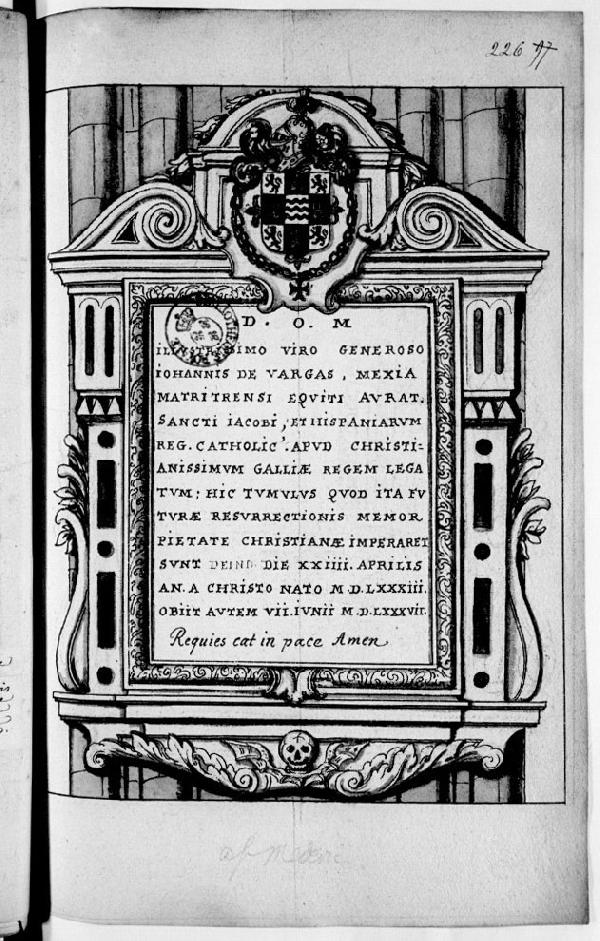 226 57
D. O. M
ILLUSTRISSIMO VIRO GENEROSO
IOHANNIS DE VARGAS, MEXIA
MATRITRENSI EQVITI AVRAT.
SANCTI IACOBI, ET HISPANIARVM
REG. CATHOLIC'. APVD CHRISTI=
ANISSIMVM GALLIÆ REGEM LEGA
TVM; HIC TVMVLVS QVOD ITA FV
TVRÆ RESVRRECTIONIS MEMOR
PIETATE CHRISTIANÆ IMPERARET
SVNT DEIND. DIE XXIIII. APRILIS
AN. A CHRISTO NATO M D.LXXXIII.
OBIIT AVTEM VII. IVNII M D.LXXXVII.
Requies cat in pace Amen